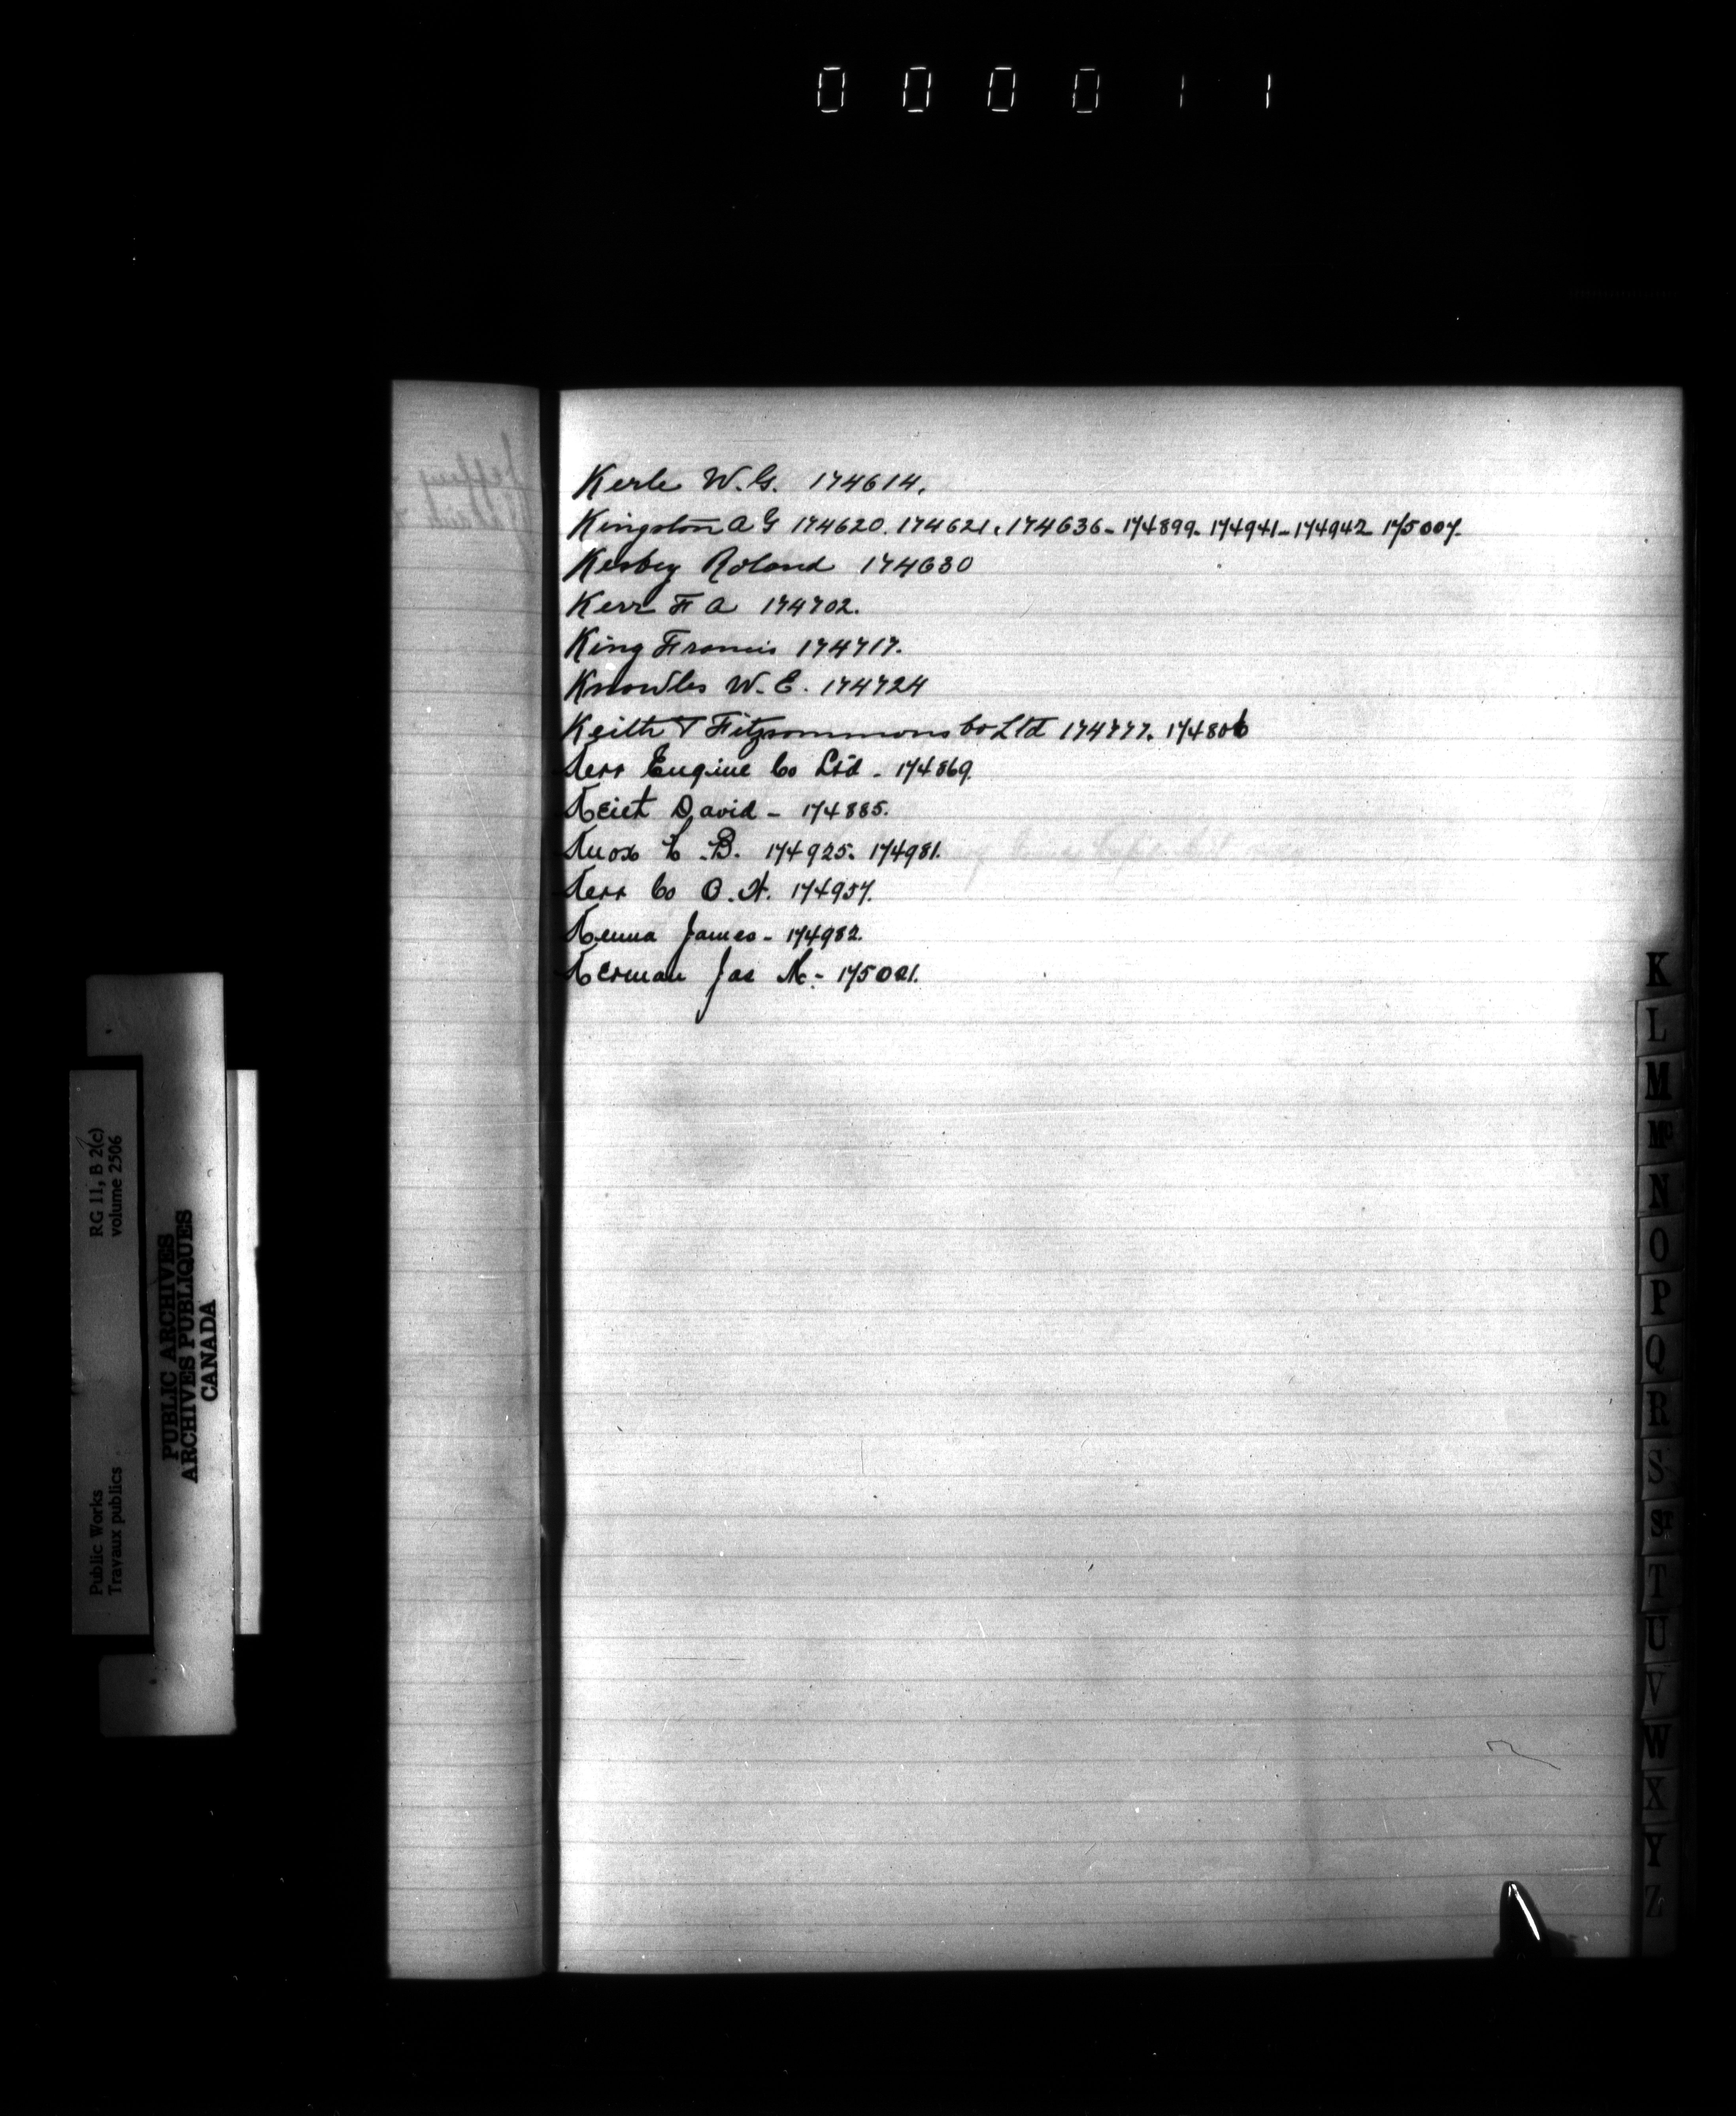 000011
Kerle W.G. 174614.
Kingston A G 174620. 174621. 174636- 174899- 174941- 174942 175007.
Kesbey Roland 174630
Kerr F A 174702.
King Francis 174717.
Knowles W. E. 174724
Keith & Fitzsommons Co Ltd 174777. 174806
Kerr Engine Co Ltd - 174869.
Keict David - 174885.
Knox C. B. 174925. 174981.
Kerr Co O. H. 174957.
Kenna James - 174982.
Kerman Jas K. - 175021.
K
L
M
Mc
N
O
P
Q
R
S
ST
T
U
V
W
X
Y
Z
RG 11, B 2(c)
volume 2506
Public Works
Travaux publics
PUBLIC ARCHIVES
ARCHIVES PUBLIQUES
CANADA